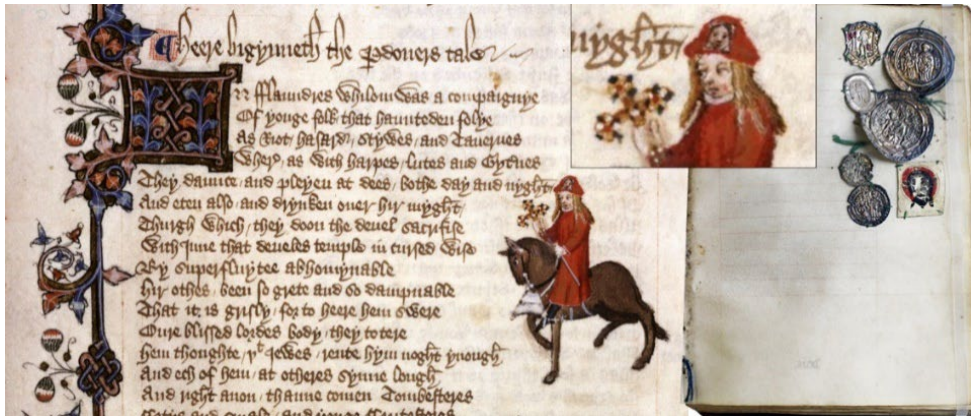 Heere bigynneth the Pdoners tale
IN fflaundres whilom was a compaignye
Of yonge folk that haunteden folye
As Riot / hasard / Stywes / and Tauernes
Wher as with harpes / lutes and Gyternes
They daunce / and pleyen at dees / bothe day and nyght
And eten also / and drynken ouer hir myght
Thurgh which / they doon the deuel sacrifise
With Inne that deueles temple in cursed wise
By superfluytee abhomynable
Hir othes / been so grete and so dampnable
That it is grisly / for to heere hem swere
Oure blissed lordes body / they totere
Hem thoughte / þt Iewes / rente hym noght ynough
And ech of hem / at otheres synne lough
And right anon / thanne comen Tombesteres
nyght